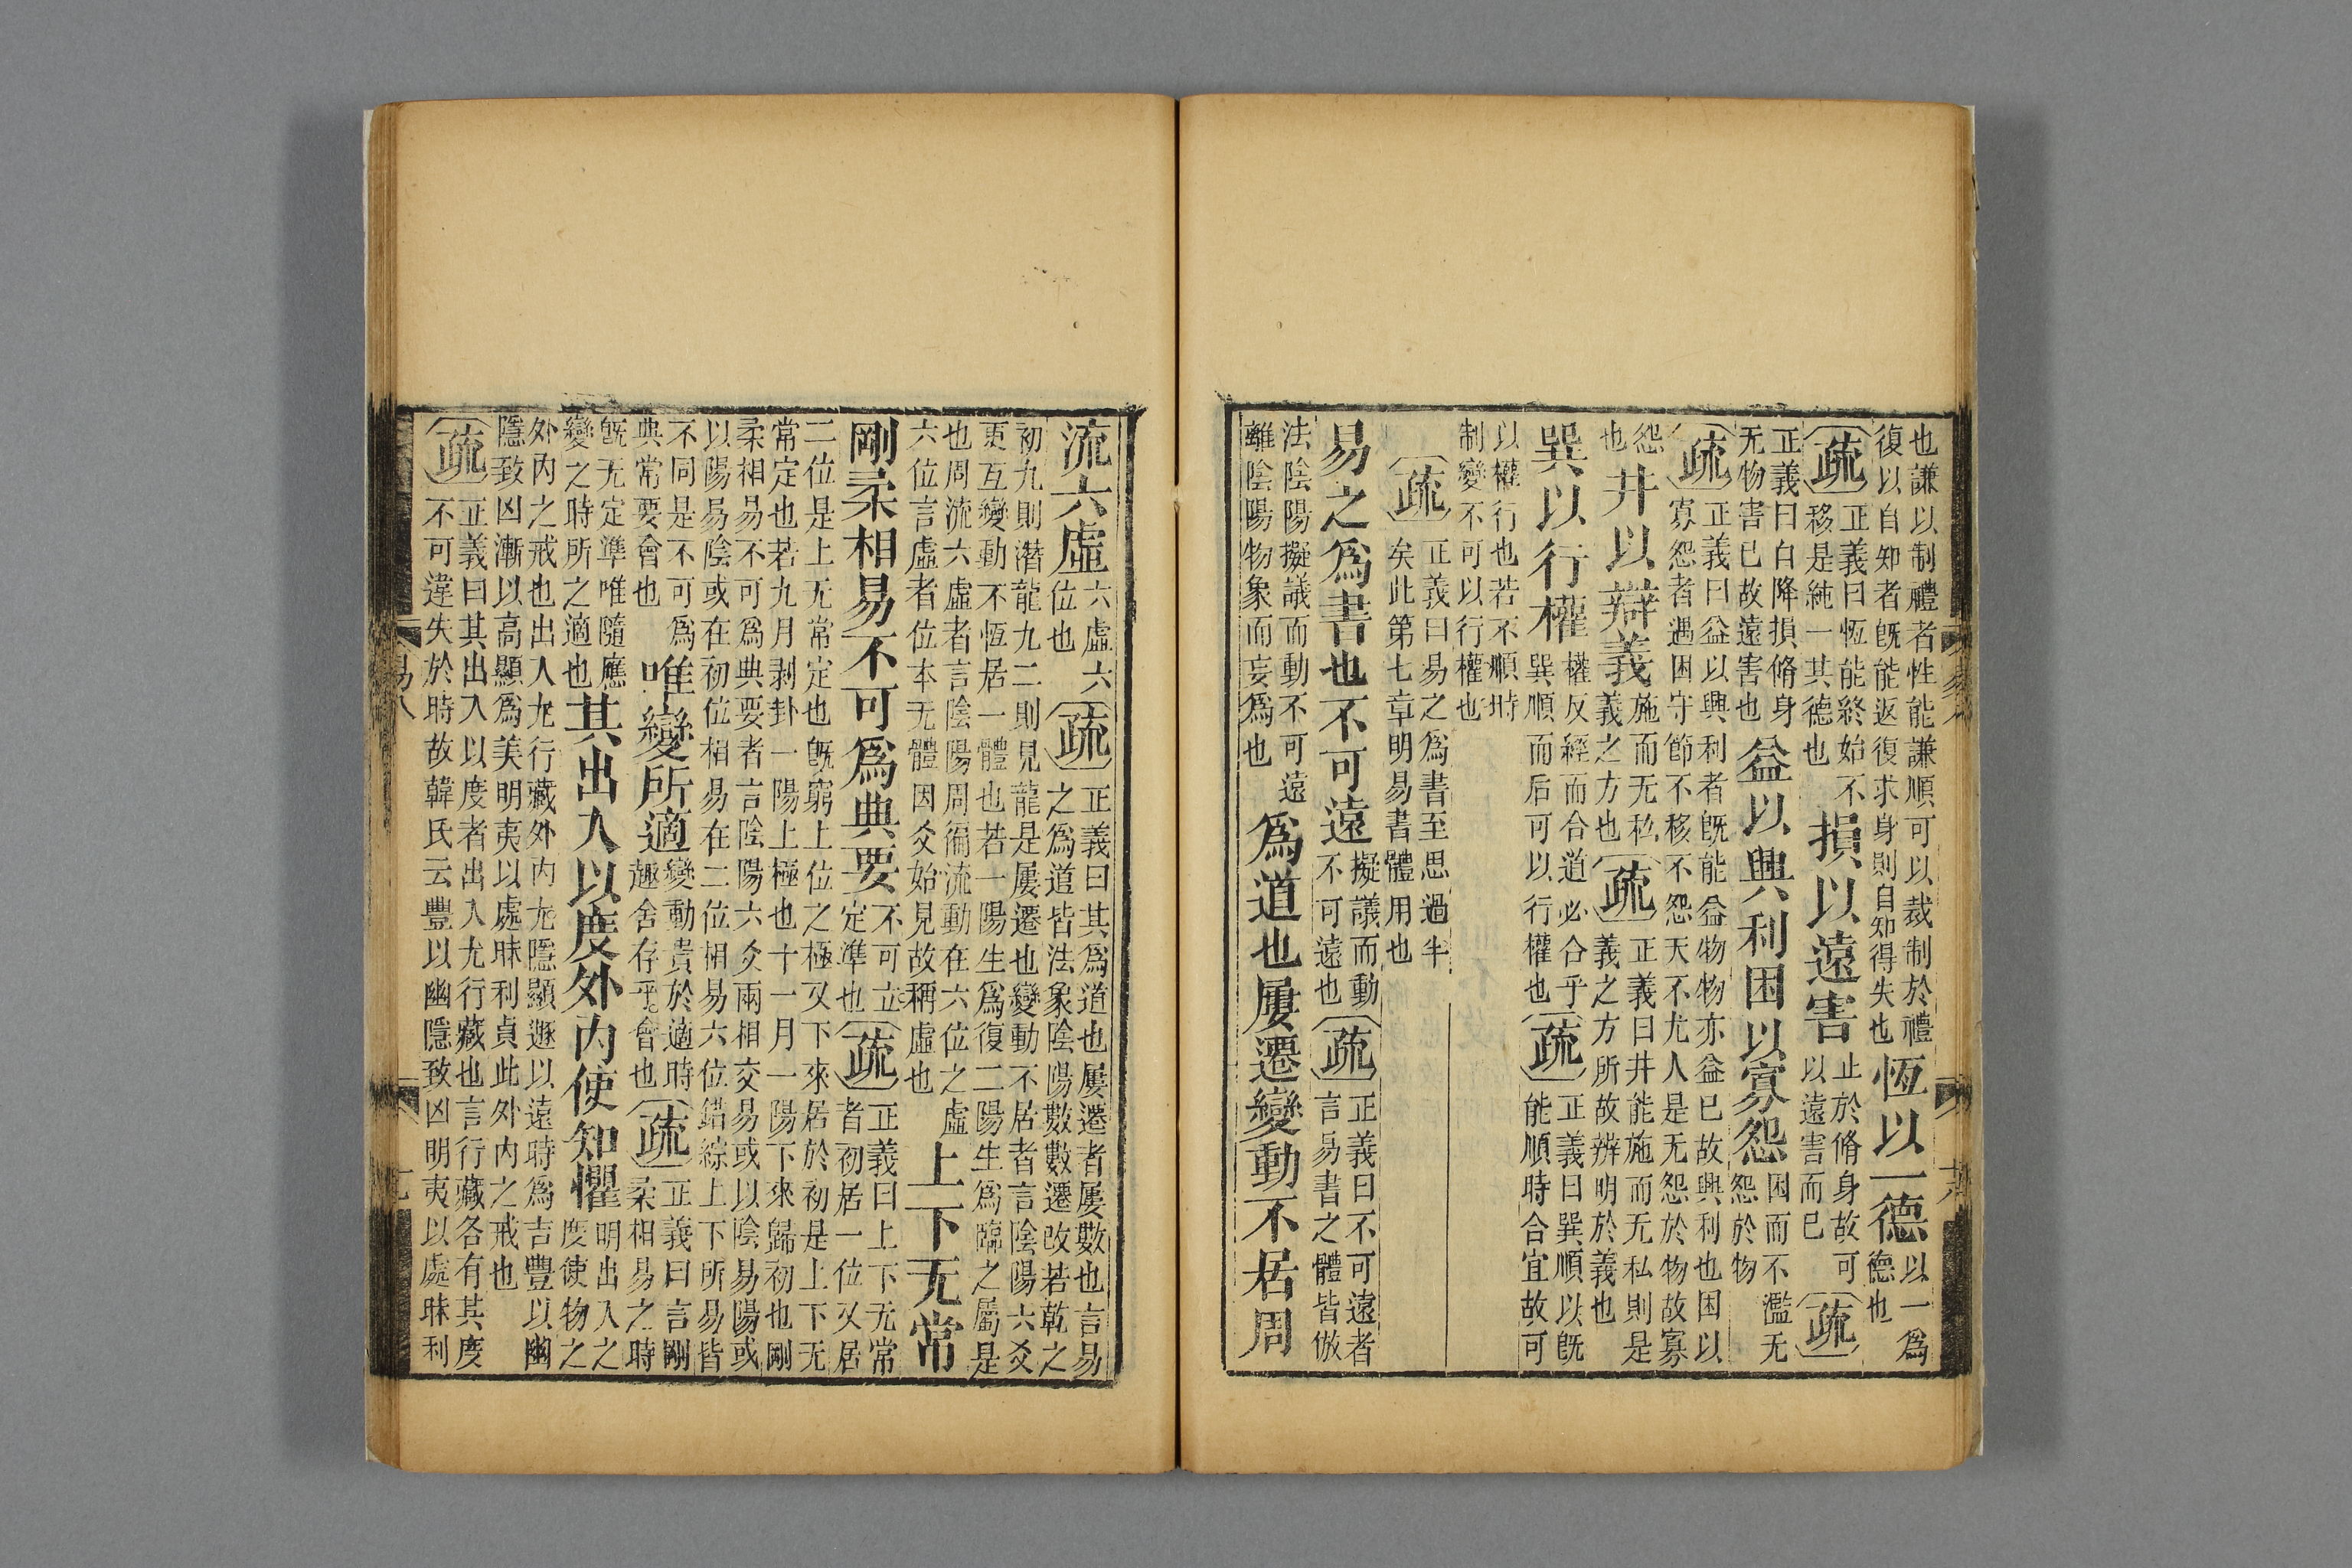 也謙以制禮者性能謙順可以裁制於禮
復以自知者旣能返復求身則自知得失也
恆以一德
以一爲
德也
疏
正義曰恆能終始不
移是純一其德也
損以遠害
止於脩身故可
以遠害而已
疏
正義曰自降損脩身
无物害已故遠害也
益以興利困以寡怨
困而不濫无
怨於物
疏
正義曰益以興利者旣能益物物亦益已故興利也困以
寡怨者遇困守節不移不怨天不尤人是无怨於物故寡
怨
也
井以辯義
施而无私
義之方也
疏
正義曰井能施而无私則是
義之方所故辨明於義也
巽以行權
權反經而合道必合乎
巽順而后可以行權也
疏
正義曰巽順以旣
能順時合宜故可
以權行也若不順時
制變不可以行權也
疏
正義曰易之爲書至思過半
矣此第七章明易書體用也
易之爲書也不可遠
擬議而動
不可遠也
疏
正義曰不可遠者
言易書之體皆倣
法陰陽擬議而動不可遠
離陰陽物象而妄爲也
爲道也屢遷變動不居周
流六虛
六虛六
位也
疏
正義曰其爲道也屢遷者屢數也言易
之爲道皆法象陰陽數數遷改若乾之
初九則潛龍九二則見龍是屢遷也變動不居者言陰陽六爻
更互變動不恆居一體也若一陽生爲復二陽生爲臨之屬是
也周流六虛者言陰陽周徧流動在六位之虛
六位言虛者位本无體因爻始見故稱虛也
上下无常
剛柔相易不可爲典要
不可立
定準也
疏
正義曰上下无常
者初居一位又居
二位是上无常定也旣窮上位之極又下來居於初是上下无
常定也若九月剥卦一陽上極也十一月一陽下來歸初也剛
柔相易不可爲典要者言陰陽六爻兩相交易或以陰易陽或
以陽易陰或在初位相易在二位相易六位錯綜上下所易皆
不同是不可爲
典常要會也
唯變所適
變動貴於適時
趣舍存乎會也
疏
正義曰言剛
柔相易之時
旣无定準唯隨應
變之時所之適也
其出入以度外内使知懼
明出入之
度使物之
外内之戒也出入尢行藏外内尢隱顯遯以遠時爲吉豐以幽
隱致凶漸以高顯爲美明夷以處昧利貞此外内之戒也
疏
正義曰其出入以度者出入尢行藏也言行藏各有其度
不可違失於時故韓氏云豐以幽隱致凶明夷以處昧利